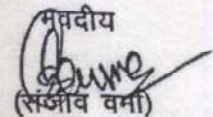 भवदीय
(संजीव वर्मा)